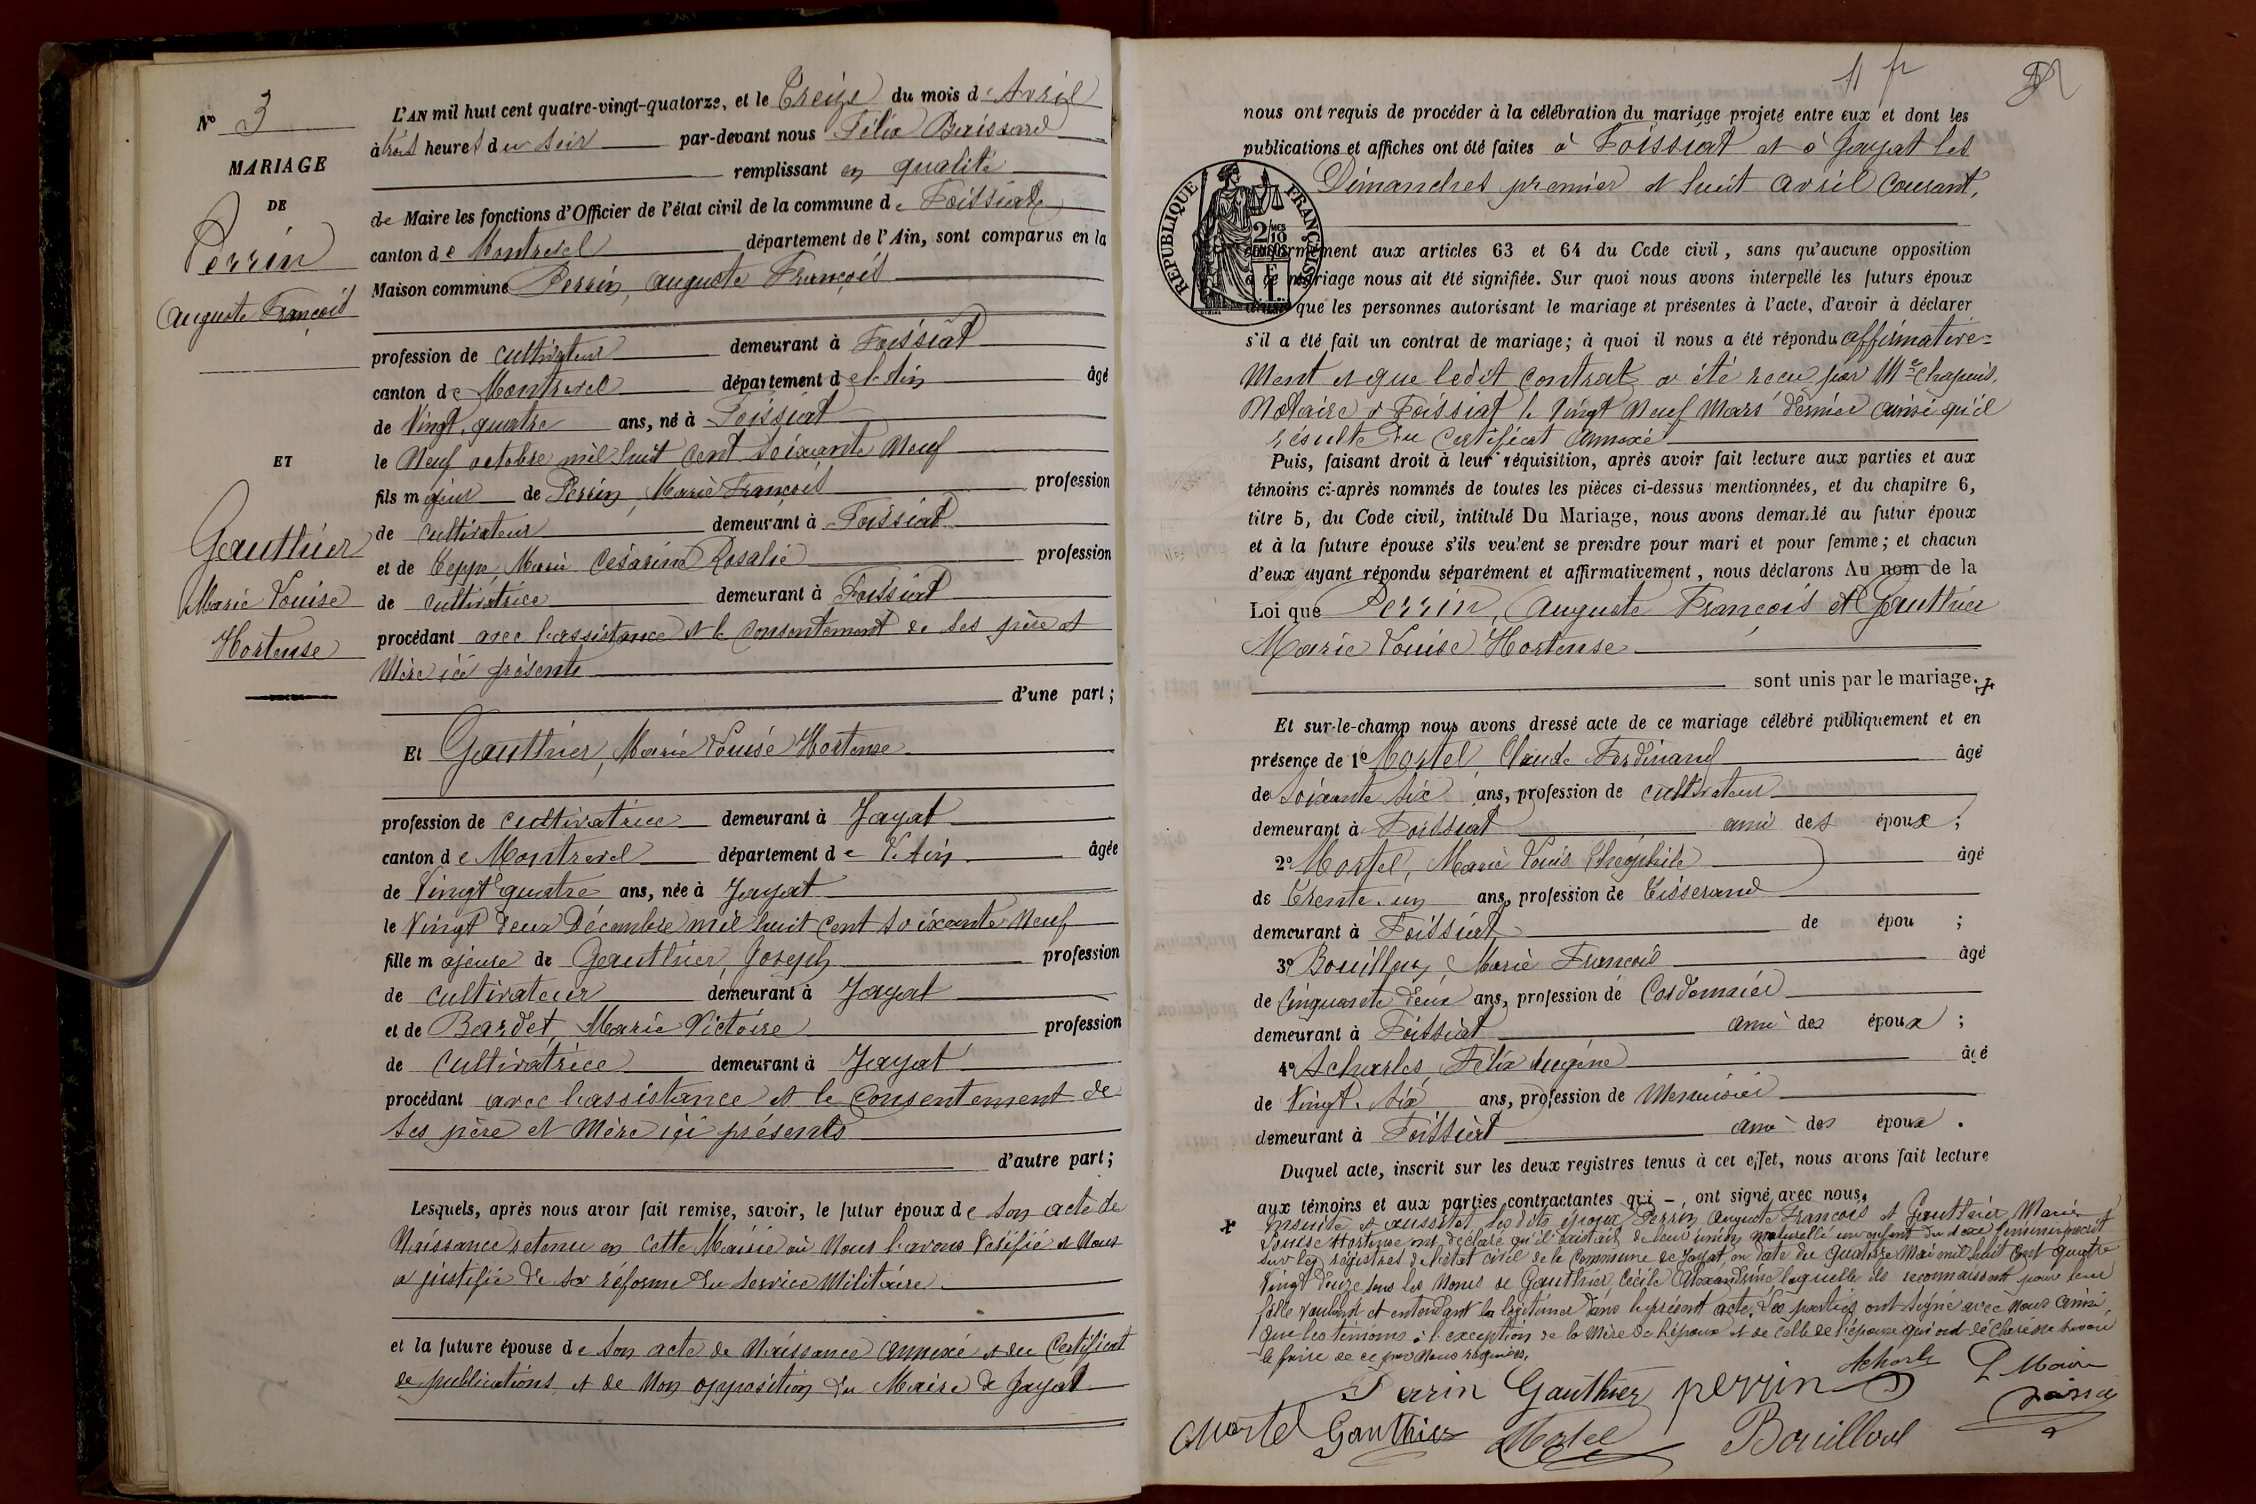 N° 3
MARIAGE
DE
Perrin
Auguste François
ET
Gauthier
Marie Louise
Hortense
L'AN mil huit cent quatre-vingt-quatorze, et le Treize du mois d'Avril
à trois heures du soir par-devant nous Félix
remplissant en qualité
de Maire les fonctions d'Officier de l'état civil de la commune de Foissiat
canton de Montrevel département de l'Ain, sont comparus en la
Maison commune Perrin, Auguste François
profession de cultivateur demeurant à Foissiat
canton de Montrevel département de l'Ain âgé
de Vingt quatre ans, né à Foissiat
le Neuf octobre mil huit cent soixante Neuf
fils majeur de Perrin, Marie François profession
de cultivateur demeurant à Foissiat
et de Teppe, Marie Césarine Rosalie profession
de cultivatrice demeurant à Foissiat
procédant avec l'assistance et le consentement de ses père et
Mère ici présents
d'une part;
Et Gauthier, Marie Louise Hortense
profession de cultivatrice demeurant à Jayat
canton de Montrevel département de l'Ain âgée
de Vingt quatre ans, née à Jayat
le Vingt deux Décembre mil huit cent soixante Neuf
fille majeure de Gauthier, Joseph profession
de cultivateur demeurant à Jayat
et de Bardet, Marie Victoire profession
de cultivatrice demeurant à Jayat
procédant avec l'assistance et le Consentement de
ses père et Mère ici présents
d'autre part;
Lesquels, après nous avoir fait remise, savoir, le futur époux de son acte de
Naissance retenu en cette Mairie où Nous l'avons Vérifié et Nous
a justifié de sa réforme du service Militaire.
et la future épouse de son acte de Naissance annexé et du Certificat
de publications et de Non opposition du Maire de Jayat
nous ont requis de procéder à la célébration du mariage projeté entre eux et dont les
publications et affiches ont été faites à Foissiat et à Jayat les
Dimanches premier et huit avril courant,
RÉPUBLIQUE FRANÇAISE
conformément aux articles 63 et 64 du Code civil, sans qu'aucune opposition
à ce mariage nous ait été signifiée. Sur quoi nous avons interpellé les futurs époux
ainsi que les personnes autorisant le mariage et présentes à l'acte, d'avoir à déclarer
s'il a été fait un contrat de mariage; à quoi il nous a été répondu affirmative=
ment et que ledit contrat a été reçu par Me Chapuis,
Notaire à Foissiat le Vingt Neuf Mars dernier ainsi qu'il
résulte du certificat annexé
Puis, faisant droit à leur réquisition, après avoir fait lecture aux parties et aux
témoins ci-après nommés de toutes les pièces ci-dessus mentionnées, et du chapitre 6,
titre 5, du Code civil, intitulé Du Mariage, nous avons demandé au futur époux
et à la future épouse s'ils veulent se prendre pour mari et pour femme; et chacun
d'eux ayant répondu séparément et affirmativement, nous déclarons Au nom de la
Loi que Perrin, Auguste François et Gauthier
Marie Louise Hortense
sont unis par le mariage.
Et sur-le-champ nous avons dressé acte de ce mariage célébré publiquement et en
présence de 1° Mortel, Claude Ferdinand âgé
de soixante six ans, profession de cultivateur
demeurant à Foissiat ami des époux;
2° Mortel, Marie Louis Théophile âgé
de Trente un ans, profession de Tisserand
demeurant à Foissiat de épou ;
3° Bouilloux, Marie François âgé
de Cinquante deux ans, profession de Cordonnier
demeurant à Foissiat ami des époux;
4° Acharles, Félix Eugène âgé
de Vingt six ans, profession de Menuisier
demeurant à Foissiat ami des époux.
Duquel acte, inscrit sur les deux registres tenus à cet effet, nous avons fait lecture
aux témoins et aux parties contractantes qui – ont signé avec nous.
x Ensuite et aussitôt les dits époux Perrin Auguste François et Gauthier Marie
Louise Hortense ont déclaré qu'il existait de leur union naturelle un enfant du sexe féminin inscrit
sur les registres de l'état civil de la Commune de Jayat, en date du quatorze Mai mil huit cent quatre
Vingt Douze sous les Noms de Gauthier Cécile Alexandrine laquelle ils reconnaissent pour leur
fille voulant et entendant la légitimer dans le présent acte. Les parties ont signé avec Nous ainsi
que les témoins à l'exception de la Mère de l'époux et de celle de l'épouse qui ont déclaré ne savoir
le faire de ce par Nous requises.
Perrin Gauthier perrin Acharles Le Maire
Mortel Gauthier Mortel Bouilloux